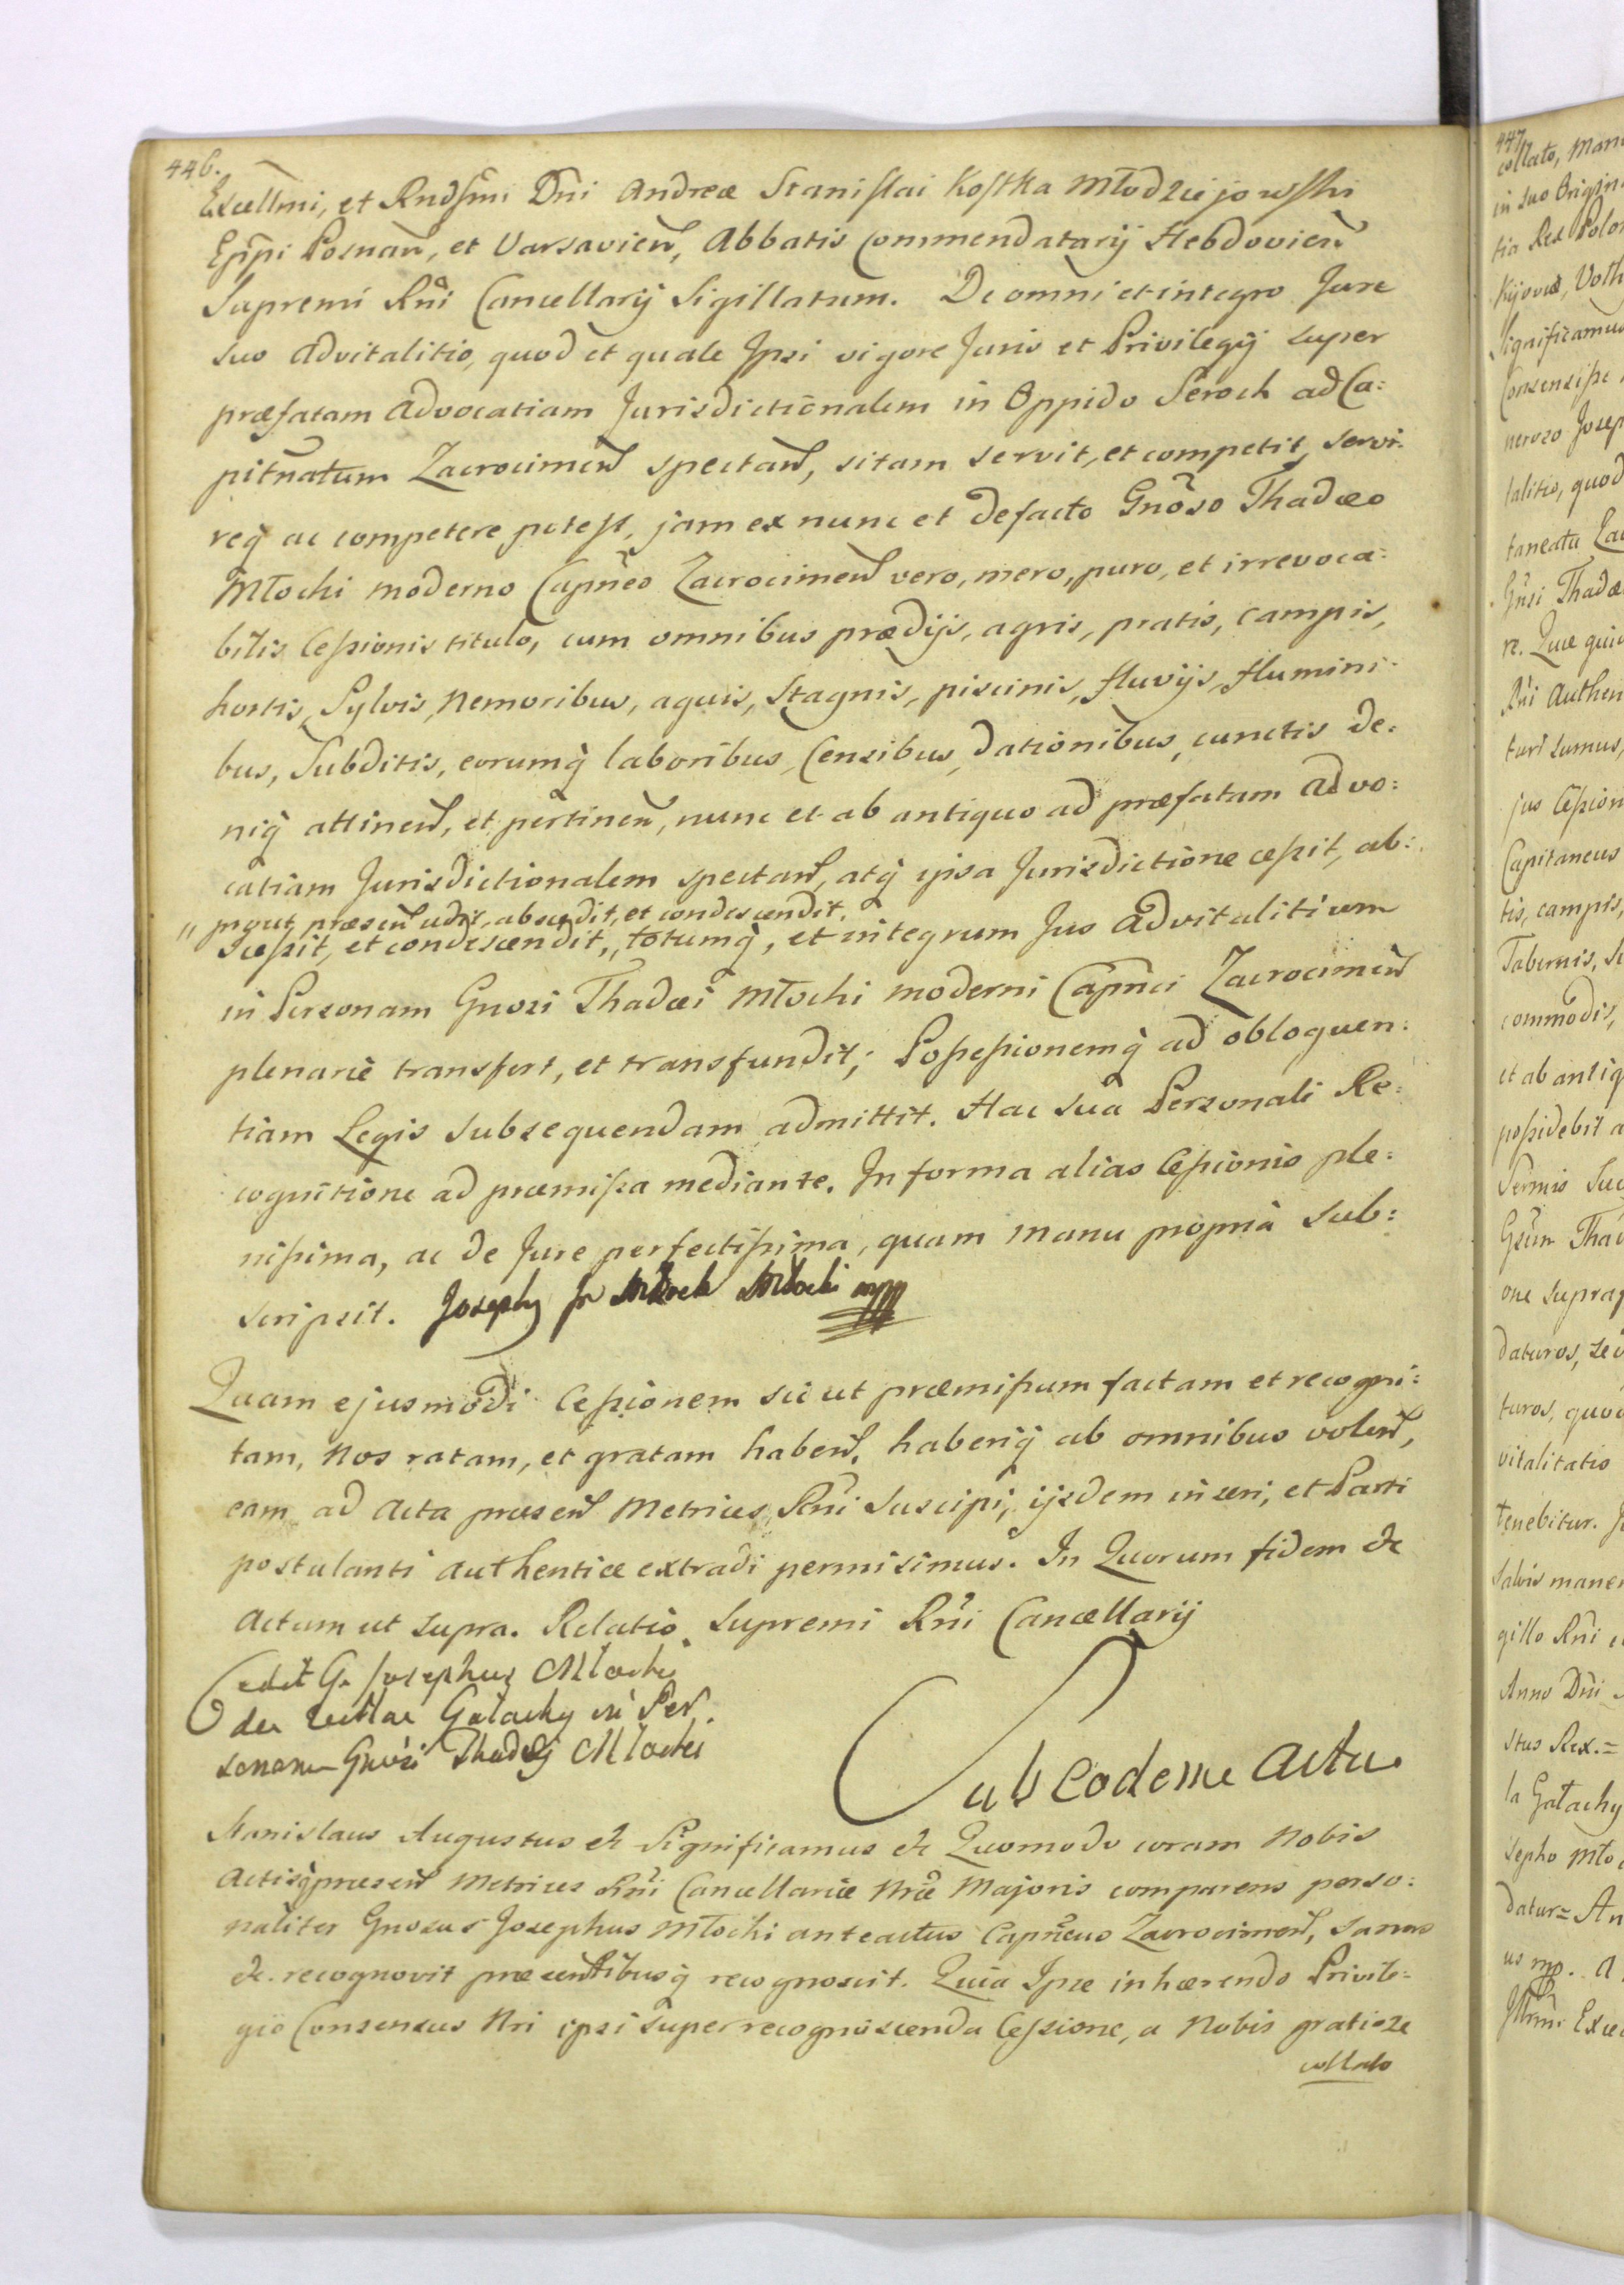 446.
Excellmi, et Rndsmi Dni Andreæ Stanislai Kostka Młodziejowski
Eppi Posnan, et Varsavien, Abbatis Commendatarij Hebdovien
Supremi Rni Cancellarij Sigillatum. De omni et integro Jure
suo advitalitio, quod et quale Ipsi vigore Juris et Privilegij super
præfatam Advocatiam Jurisdictionalem in Oppido Seroch ad Ca:
pitnatum Zacrocimen spectan, sitam servit, et competit, servi-
req̃ ac competere potest, jam ex nunc et de facto Gnoso Thadæo
Młocki moderno Capneo Zacrocimen vero, mero, puro, et irrevoca:
bilis Cessionis titulo, cum omnibus prædijs, agris, pratis, campis,
hortis, Sylvis, Nemoribus, aquis, Stagnis, piscinis, fluvijs, flumini-
bus, Subditis, eorumq̃ laboribus, Censibus, dationibus, cunctis de:
niq̃ attinen, et pertinen, nunc et ab antiquo ad præfatam Advo:
catiam Jurisdictionalem spectan, atq̃ ipsa Jurisdictione cessit, ab:
" prout præsen cedit, abscedit, et condescendit.
scessit, et condescendit, " totumq̃, et integrum Jus Advitalitium
in Personam Gnosi Thadæi Młocki moderni Capnei Zacrocimen
plenarie transfert, et transfundit; Possessionemq̃ ad obloquen:
tiam Legis subsequendam admittit. Hac sua Personali Re:
cognitione ad præmissa mediante. In forma alias Cessionis ple:
nissima, ac de Jure perfectissima, quam manu propria sub:
scripsit. Joseph Młocki mpp
Quam ejusmodi Cessionem sic ut præmissum factam et recogni:
tam, Nos ratam, et gratam haben, haberiq̃ ab omnibus volen,
eam ad Acta præsen Metrices Rni Suscipi, ijsdem inseri, et Parti
postulanti authentice extradi permisimus. In Quorum fidem &c
Actum ut supra. Relatio Supremi Rni Cancellarij
Cedit G. Josephus Młocki
Gałachy in Per
sonam Gnosi Thadæj Młocki
Sub Eodem Actu
Stanislaus Augustus &c Significamus &c Quomodo coram Nobis
Actisq̃ præsen Metrices Rni Cancellariæ Nræ Majoris comparens perso:
naliter Gnosus Josephus Młocki anteactus Capneus Zacrocimen, sanus
&c. recognovit præsentibusq̃ recognoscit. Quia Ipse inhærendo Privile-
gio Consensus Nri ipsi super recognoscenda Cessione, a Nobis gratiose
collato
447
collato, Man
in suo Origin
tia Rex Polon
Kijoviæ, Volh
Significamus
Consensisse
neroso Josep
talitio, quod
taneatu Zac
Gnsi Thadæ
re. Quæ qui
Rni Authen
turi sumus,
jus Cession
Capitaneus
tis, campis,
Tabernis, S
commodis,
et ab antiq
possidebit a
Sermis Suc
Gsum Thad
one supra
daturos, se
turos, quod
vitalitatis
tenebitur. J
salvis mane
gillo Rni
Anno Dni
stus Rex. =
la Gałachy
sepho Mło
datur = An
us mp. A
Illrmi Exce